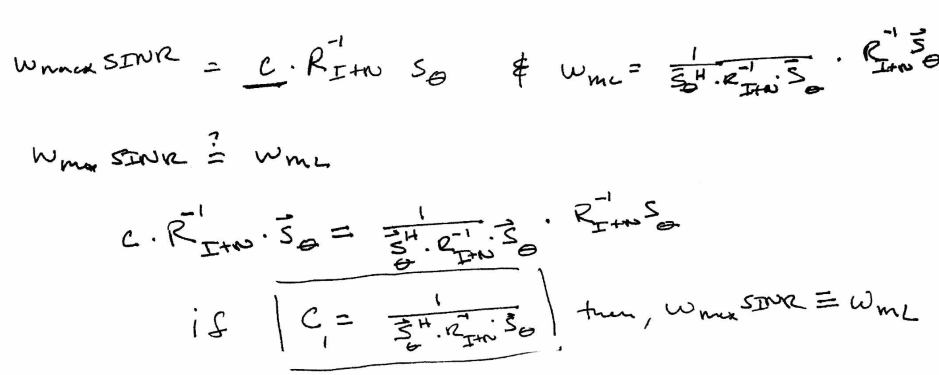 w_max SINR = c · R_{I+N}^{-1} S_θ & w_ML = 1/(S⃗_θ^H · R_{I+N}^{-1} · S⃗_θ) · R_{I+N}^{-1} S⃗_θ
w_max SINR ≟ w_ML
c · R_{I+N}^{-1} · S⃗_θ = 1/(S⃗_θ^H · R_{I+N}^{-1} · S⃗_θ) · R_{I+N}^{-1} S_θ
if C_1 = 1/(S⃗_θ^H · R_{I+N}^{-1} · S⃗_θ) then, w_max SINR ≡ w_ML